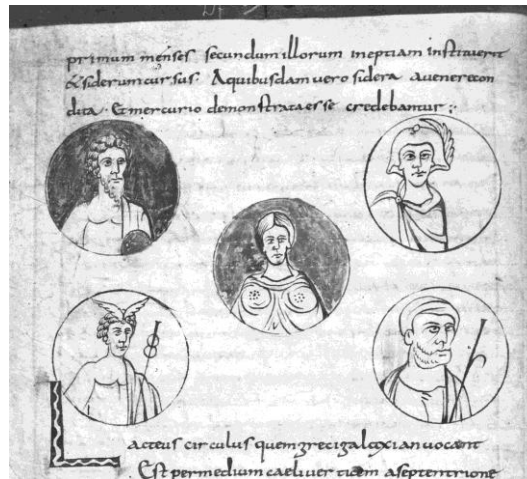 primum menses secundum illorum ineptiam instituerit
& siderum cursus. A quibusdam vero sidera a venere con
dita. Et mercurio demonstrata esse credebantur;
Lacteus circulus quem greci galaxian vocant
Est per medium caeli vertitcem a septentrione